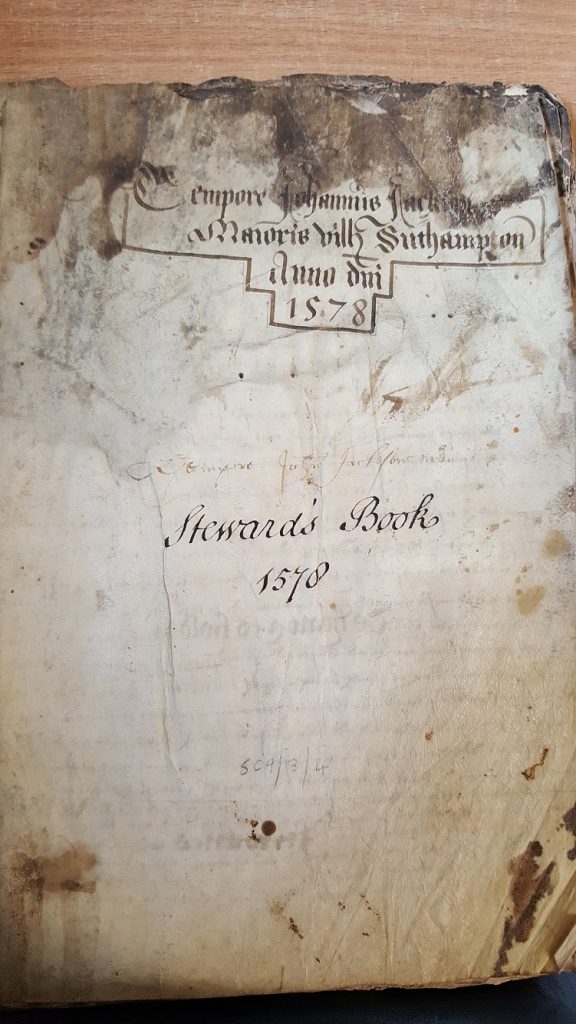 Tempore Johannis Jackson
Maioris vill Suthampton
Anno dni
1578
Tempore John Jackson
Steward's Book
1578
SC9/3/4